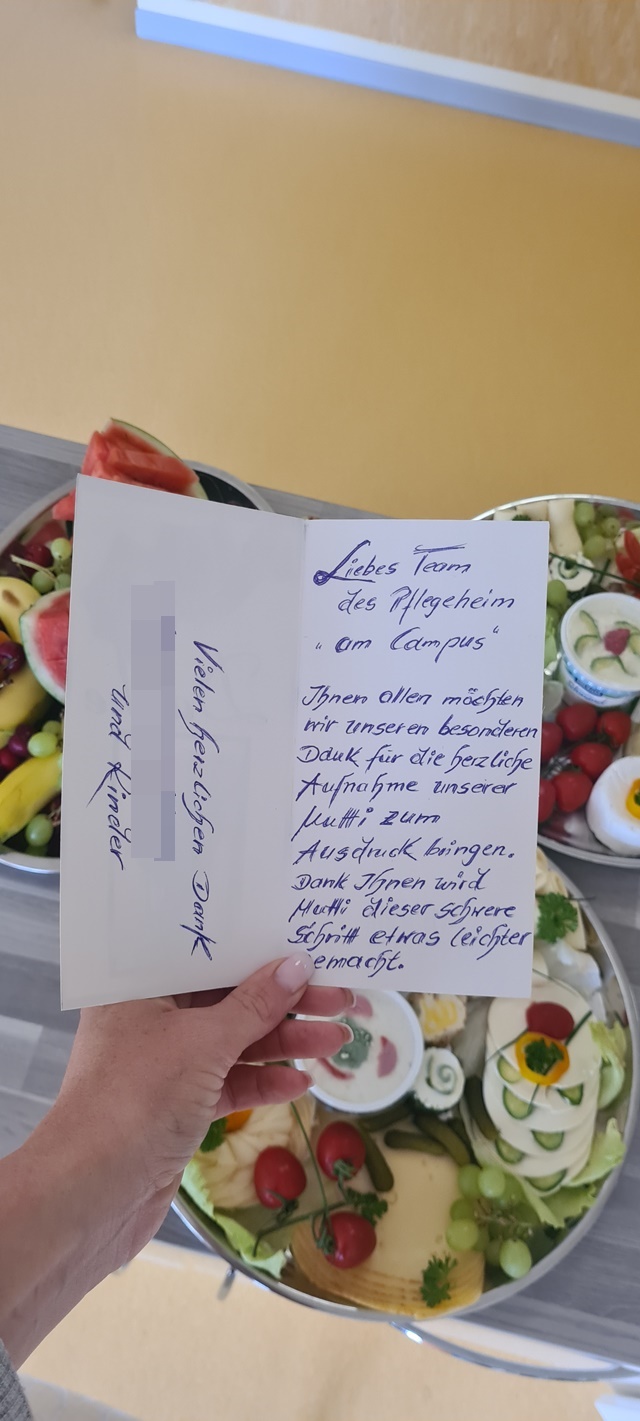 Vielen herzlichen Dank
und Kinder
Liebes Team
des Pflegeheim
"am Campus"
Ihnen allen möchten
wir unseren besonderen
Dank für die herzliche
Aufnahme unserer
Mutti zum
Ausdruck bringen.
Dank Ihnen wird
Mutti dieser schwere
Schritt etwas leichter
gemacht.